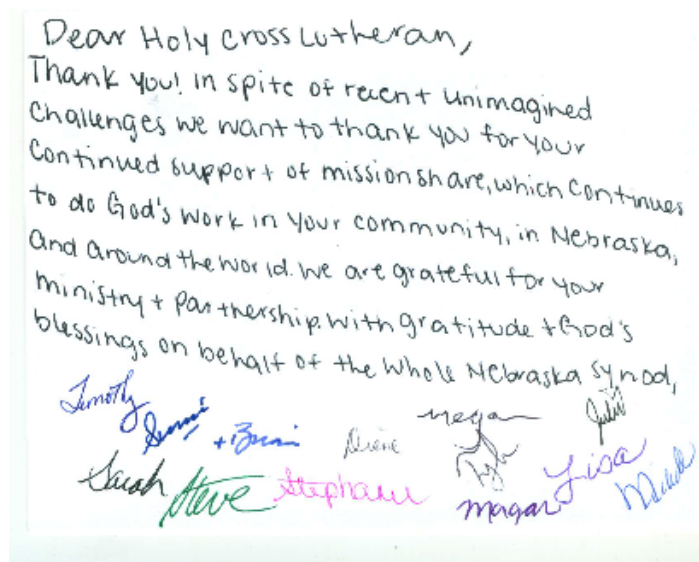 Dear Holy Cross Lutheran,
Thank you! In spite of recent unimagined
Challenges we want to thank you for your
Continued support of mission share, which continues
to do God's work in your community, in Nebraska,
and around the world. We are grateful for your
ministry + partnership. With gratitude + God's
blessings on behalf of the whole Nebraska Synod,
Timothy
+ Brian Diene Megan Juliö
Sarah Steve Stephanie Lisa
Megan